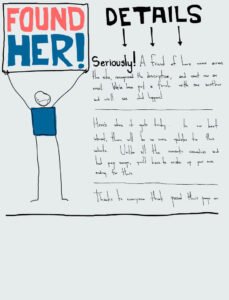 FOUND
HER!
DETAILS
Seriously! A friend of hers came across
the site, recognized the description, and sent me an
email. We've been put in touch with one another
and we'll see what happens!
Here's where it gets tricky.
about, there will be no more updates for this
website. Unlike all the romantic comedies and
bad pop songs, you'll have to make up your own
ending for this.
Thanks to everyone that spread their pages or